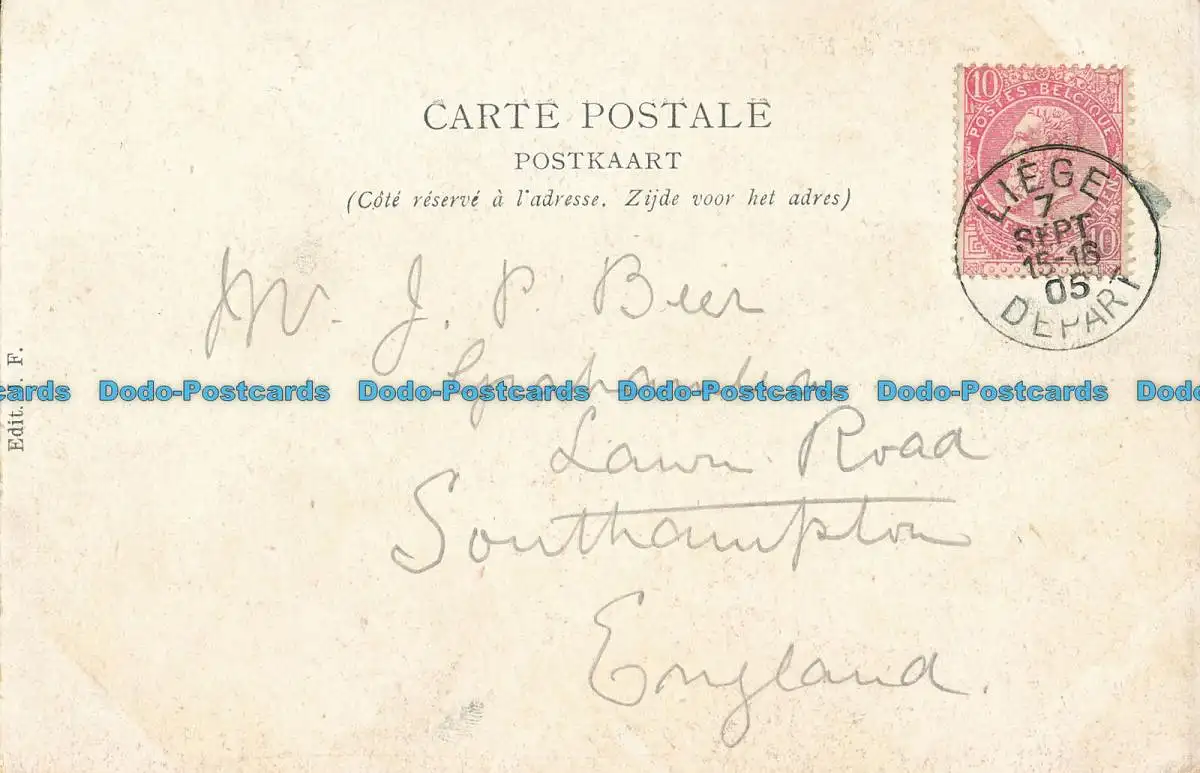 CARTE POSTALE
POSTKAART
(Côté réservé à l'adresse. Zijde voor het adres)
10
POSTES·BELGIQUE
10
LIÈGE
7
SEPT
15-16
05
DEPART
Mr. J. P. Beer
Lawn Road
Southampton
England.
Edit. F.
Dodo-Postcards Dodo-Postcards Dodo-Postcards Dodo-Postcards